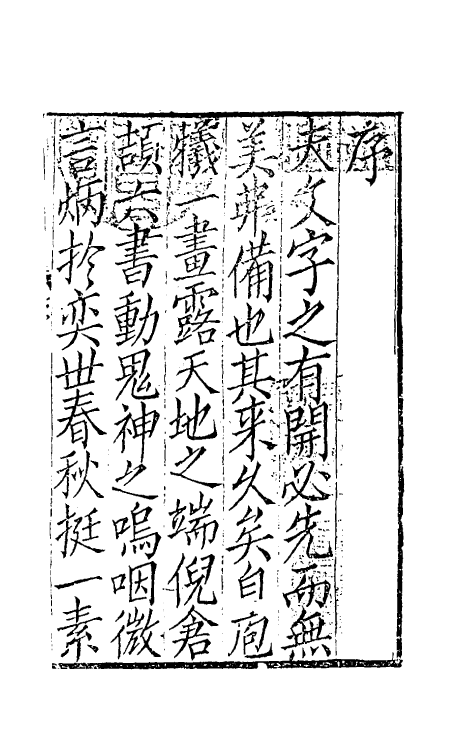 序
夫文字之有開必先而無
美弗備也其来久矣自庖
犧一畫露天地之端倪倉
頡六書動鬼神之嗚咽微
言炳於奕世春秋挺一素